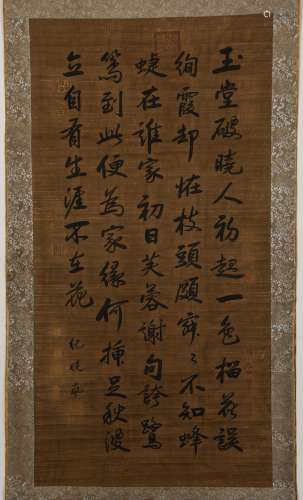 玉堂破曉人初起一色榴花誤
絢霞却怪枝頭頗寂〻不知蜂
蜨在誰家初日芙蓉謝句誇鷺
篤到此便為家緣何插足秋漫
立自有生涯不在花
紀曉嵐